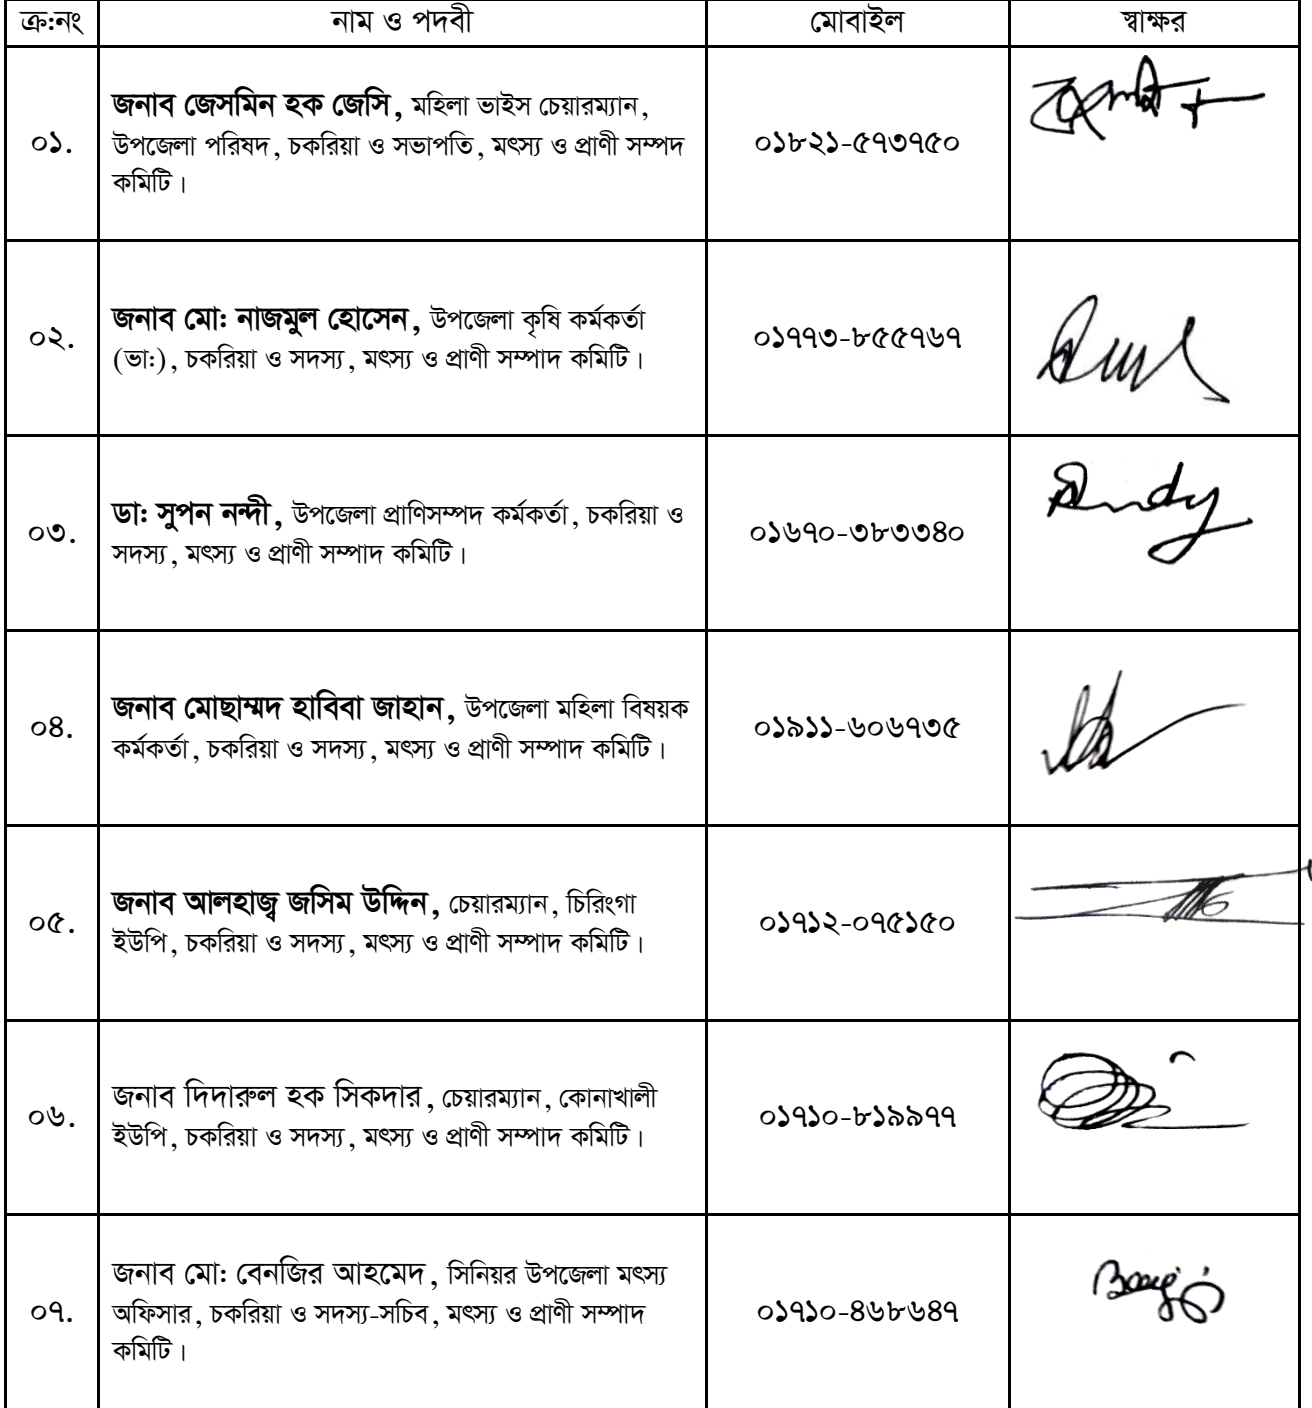 ক্র:নং নাম ও পদবী মোবাইল স্বাক্ষর
০১. জনাব জেসমিন হক জেসি, মহিলা ভাইস চেয়ারম্যান,
উপজেলা পরিষদ, চকরিয়া ও সভাপতি, মৎস্য ও প্রাণী সম্পদ
কমিটি।
০১৮২১-৫৭৩৭৫০
০২. জনাব মো: নাজমুল হোসেন, উপজেলা কৃষি কর্মকর্তা
(ভা:), চকরিয়া ও সদস্য, মৎস্য ও প্রাণী সম্পাদ কমিটি।
০১৭৭৩-৮৫৫৭৬৭
০৩. ডা: সুপন নন্দী, উপজেলা প্রাণিসম্পদ কর্মকর্তা, চকরিয়া ও
সদস্য, মৎস্য ও প্রাণী সম্পাদ কমিটি।
০১৬৭০-৩৮৩৩৪০
০৪. জনাব মোছাম্মদ হাবিবা জাহান, উপজেলা মহিলা বিষয়ক
কর্মকর্তা, চকরিয়া ও সদস্য, মৎস্য ও প্রাণী সম্পাদ কমিটি।
০১৯১১-৬০৬৭৩৫
০৫. জনাব আলহাজ্ব জসিম উদ্দিন, চেয়ারম্যান, চিরিংগা
ইউপি, চকরিয়া ও সদস্য, মৎস্য ও প্রাণী সম্পাদ কমিটি।
০১৭১২-০৭৫১৫০
০৬. জনাব দিদারুল হক সিকদার, চেয়ারম্যান, কোনাখালী
ইউপি, চকরিয়া ও সদস্য, মৎস্য ও প্রাণী সম্পাদ কমিটি।
০১৭১০-৮১৯৯৭৭
০৭. জনাব মো: বেনজির আহমেদ, সিনিয়র উপজেলা মৎস্য
অফিসার, চকরিয়া ও সদস্য-সচিব, মৎস্য ও প্রাণী সম্পাদ
কমিটি।
০১৭১০-৪৬৮৬৪৭